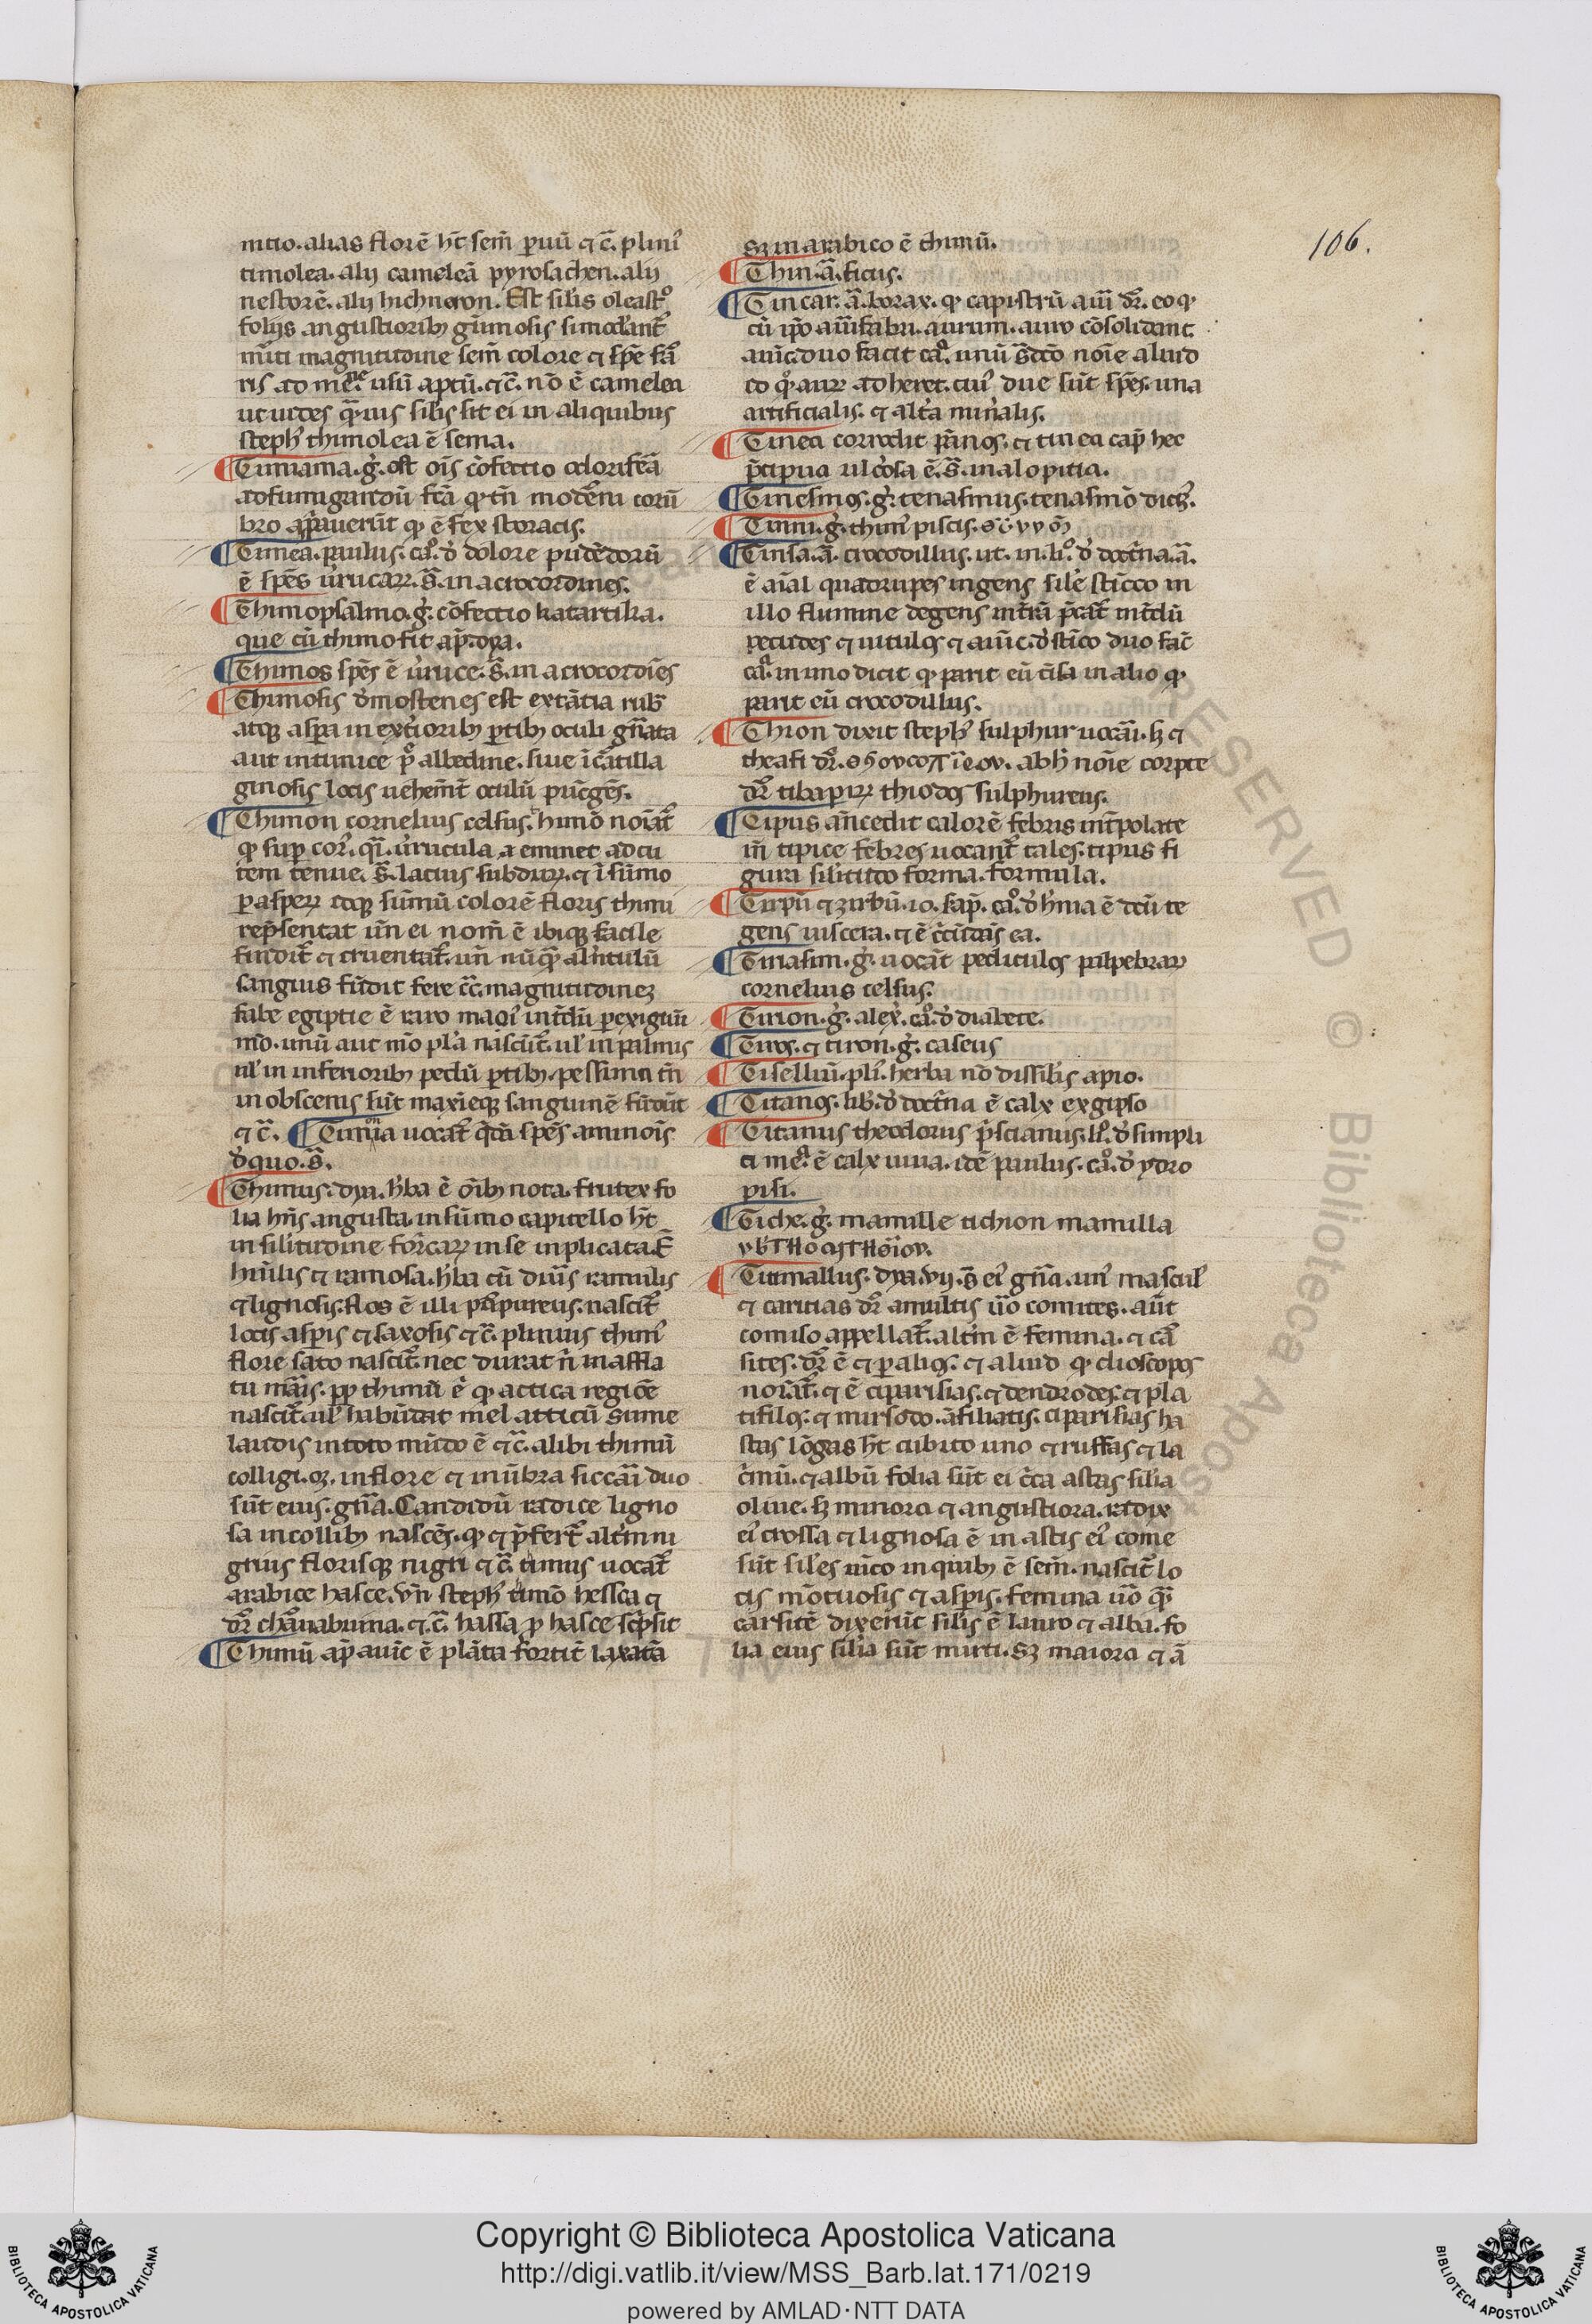 106.
nitio. alias florē hn̄t sem̄ ꝑuū ⁊ c̄. plini᾽
timolea. alij cameleā pyrosachen. alij
nestorē. alij hichneron. Est sil̄is oleast᷑o
folijs angustioribꝫ gūmosis si modant᷑
mīti magnitudine sem̄ colore ⁊ sp̄e fā
ris ad me᷑ usū aptū. ⁊ c̄. nō ē camelea
ut uides q̄uis sil̄is sit ei in aliquibus
steph᾽ thimolea ē sema.
¶Timiama. g᷑. est oīs cōfectio odorifeā
ad fumigandū fc̄a qᷓ tn̄ moderni
bro app̄auerūt qᷓ ē fex storacis.
¶Timea. paulus. ca᷑o. ď dolore pudēdorū
ē sp̄es ūrucaꝝ. S̄. in acrocordines.
¶Thimopsalmo. g᷑. cōfectio katartika.
que cū thimo fit ap̄. dya.
¶Thimos sp̄es ē ūruce. S̄. in acrocordīes
¶Thimosis dmostenes est extātia rub᾽
atqꝫ aspa in ext̄ioribꝫ ꝑtibꝫ oculi gn̄ata
aut in tunice ꝑ albedine. siue ī cātilla
ginosis locis uehem̄t oculū pūgēs.
¶Thimon cornelius celsus. himō noīat᷑
qᷓ sup cor᾽. qi᷑. ūrucula a eminet ad cu
tem tenue. S̄. latius subduꝝ. ⁊ ī sūmo
ꝑasperꝝ idqꝫ sūmū colorē floris thimi
rep̄sentat un̄ ei nom̄ ē ibiqꝫ facile
findit᷑ ⁊ cruentat᷑. un̄ nūq̄ al̄ntulū
sanguis fūdit fere cc̄. magnitudineꝫ
fabe egiptie ē raro maoi᾽ int̄dū ꝑexiguū
mō. unū aut mō pl᷑a nascūt᷑. ul᾽ in palmis
ul᾽ in inferioribꝫ pedū ꝑtibꝫ. pessima tn̄
in obscenis sūt maxieqꝫ sanguinē fūdūt
⁊ c̄. ¶Timia uocat᷑ q̄dā sp̄es aminois
ď quo. S̄.
¶Thimus. dya. h᷑ba ē oībꝫ nota. frutex fo
lia hn̄s angusta. in sūmo capitello hn̄t
in sil̄itudine formicaꝝ in se inplicata. Ē
hūilis ⁊ ramosa. h᷑ba cū diu᷑is ramulis
⁊ lignosis. flos ē illi purpureus. nascit᷑
locis asp̄is ⁊ saxosis ⁊ c̄. plinius thimi᾽
flore sato nascit᷑. nec durat n᷑ in affla
tu mar᷑is. pp᷑ thimū ē qᷓ actica regiōe
nascit᷑. ul᾽ habūdat mel atticū sume
laudis in toto mūdo ē ⁊ c̄. alibi thimū
colligi. oꝫ. in flore ⁊ in ūbra siccai᾽ duo
sūt eius. gn̄a. Candidū radice ligno
sa in collibꝫ nascēs. qᷓ ⁊ p̄fert᷑ altm ni
grius florisqꝫ nigri ⁊ c̄. timus uocat᷑
arabice hasce. Vn̄ steph᾽ timō hessca ⁊
dr᷑ chāuabruina. ⁊ c̄. hassa ꝓ hasce sc̄psit
¶Thimū ap̄ auic̄ ē plāta fortit᷑ laxatā
sꝫ in arabico ē thimū.
¶Thin. ā. ficus.
¶Tincar. ā. borax. qᷓ capistrū auī dr᷑. eo qᷓ
cū ip̄o aurifabri. aurum. auro cōsolidant.
auic̄. duo facit ca᷑. unū S̄dc̄o noīe aliud
eo q᷑ auꝝ adheret. cui᾽ due sūt sp̄es. una
artificialis. ⁊ alt᷑a min᷑alis.
¶Tinea corrodit pānos. ⁊ tinea cap̄. hec
p̄cipua ulc᷑osa ē. S̄. in alopitia.
¶Tinesmos. g᷑. tenasmus. tenasmō dict᷑.
¶Tinni. g᷑. thini᾽ piscis.
¶Tinsa. ā. crocodillus. ut. in. li᷑o. ď doct᷑na. ā.
ē aīal quadrupes ingens sil̄e stīcco in
illo flumine degens int᷑rā p̄cat᷑ int᷑dū
pecudes ⁊ uitulos ⁊ auīc. ď stīco duo fac̄
ca᷑. in uno dicit qᷓ parit eū tīsa in alio qᷓ
parit eū crocodulus.
¶Thion dixit steph᾽ sulphur uocai᾽. sꝫ ⁊
theafi dr᷑. abh᾽ noīe corpte
dr᷑ tibapiꝝ thiodos sulphureus.
¶Tipus ancedit calorē febris int᷑polate
in̄ tipice febres uocant᷑ tales. tipus fi
gura sil̄itudo forma. formula.
¶Tirpū ⁊ zirbū. io. sap̄. ca᷑o. ď h᷑nia ē dc̄ū te
gens uiscera. ⁊ ē c᷑cūdās ea.
¶Tiriasim. g᷑. uocāt pediculos palpebraꝝ
cornelius celsus.
¶Tirion. g᷑. alex᾽. ca᷑o. ď diabete.
¶Tiros. ⁊ tiron. g᷑. caseus
¶Tisellū. pli᾽. herba nō dissil̄is apio.
¶Titanos. lib᾽. ď doct᷑na ē calx ex gipso
¶Titanus theodorus p᷑scianus. li᷑o. ď simpli
ci me᷑. ē calx uiua. idē paulus. ca᷑o. ď ydro
pisi.
¶Tiche. g᷑. mamille tichion mamilla
¶Titimallus. dya. vij. S̄ ei᾽ gn̄a. uni᾽ mascul᾽
⁊ caritias dr᷑ a multis ūo comites. aūt
comiso appellat᷑. altm ē femina. ⁊ cā
sites. dr᷑ ē ⁊ ꝑ alios. ⁊ aliud qᷓ elioscopos
noīat᷑. ⁊ ē ciparisias. ⁊ dendrodes. ⁊ pla
tifilos. ciparisias ha
stas lōgas hn̄t cubito uno ⁊ ruffas ⁊ la
⁊ albū folia sūt ei c᷑ca astas sil̄ia
oliue. sꝫ minora ⁊ angustiora. radix
ei᾽ crossa ⁊ lignosa ē in astis ei᾽ come
sūt sil̄es iūco in quibꝫ ē sem̄. nascit᷑ lo
cis mōtuosis ⁊ asp̄is. femina ūo q̄
carsitē dixerūt sil̄is ē lauro ⁊ alba. fo
lia eius sil̄ia sūt mirti. sꝫ maiora ⁊ ā
Copyright © Biblioteca Apostolica Vaticana
http://digi.vatlib.it/view/MSS_Barb.lat.171/0219
powered by AMLAD·NTT DATA